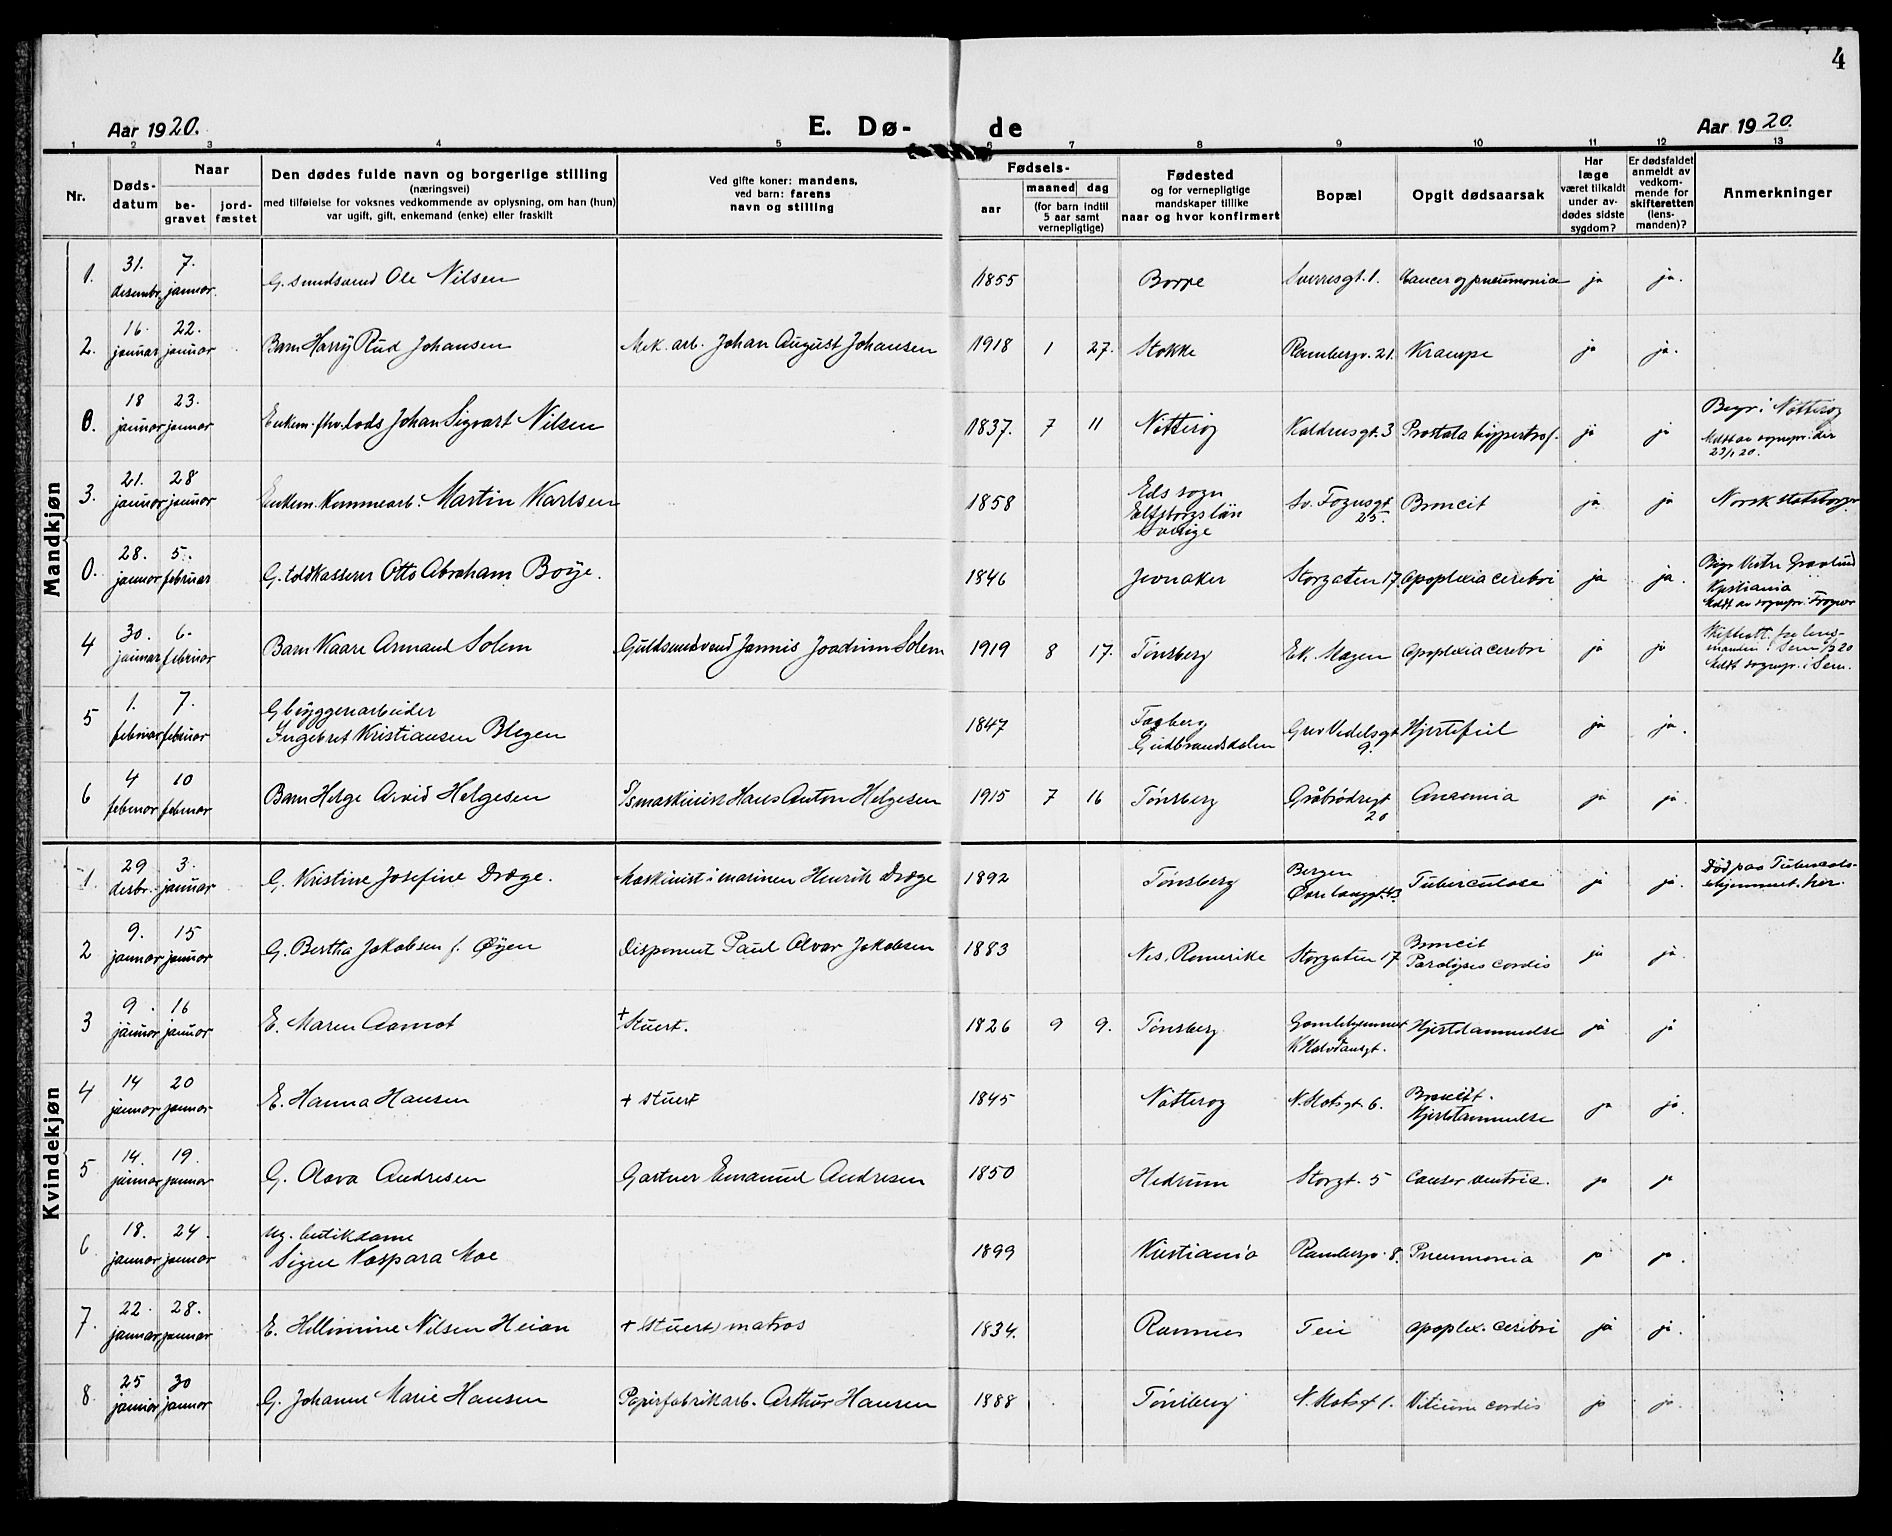 4
Aar 1920.
E. Dø-
de
Aar 1920.
1 2 3 4 5 6 7 8 9 10 11 12 13
Nr.
Døds-
datum
Naar
be-
gravet
jord-
fæstet
Den dødes fulde navn og borgerlige stilling
(næringsvei)
med tilføielse for voksnes vedkommende av oplysning, om han (hun)
var ugift, gift, enkemand (enke) eller fraskilt
Ved gifte koner: mandens,
ved barn: farens
navn og stilling
Fødsels-
aar
maaned dag
(for barn indtil
5 aar samt
vernepligtige)
Fødested
og for vernepligtige
mandskaper tillike
naar og hvor konfirmert
Bopæl
Opgit dødsaarsak
Har
læge
været tilkaldt
under av-
dødes sidste
sygdom?
Er dødsfaldet
anmeldt av
vedkom-
mende for
skifteretten
(lens-
manden)?
Anmerkninger
Mandkjøn
1. 31. desembr. 7. januar. G. smedsvend Ole Nilsen 1855 Borre Sverresgt. 1. Cancer og pneumonia ja ja.
2. 16. januar 22. januar Barn Harry Rud Johansen Mek. arb. Johan August Johansen 1918 1 27. Stokke Rambergv. 21. Krampe ja ja.
0. 18 januar 23. januar Enkem. fhv. lods Johan Sigvart Nilsen 1837. 7 11 Nøtterøy Kaldnesgt. 3 Prostata hypertrof. ja ja Begr. i Nøtterøy
Meldt av sognepr. der
23/1 20.
3. 21. januar 28 januar Enkem. Kommunearb. Martin Karlsen 1858 Eds sogn
Elfsborgs län
Sverige Sv. Foynsgt.
25. Broncit ja ja Norsk statsborger
0. 28. januar 5. februar G. toldkasserer Otto Abraham Boye. 1846 Jevnaker Storgaten 17. Apoplexia cerebri ja ja. Begr. Vestre Gravlund
Kristiania
Meldt av sognepr. i Frogner
4 30. januar 6. februar Barn Kaare Armand Solem Guldsmedsvend Jannis Joachim Solem 1919 8 17. Tønsberg Ek. Magen Apoplexia cerebri ja ja Skifteatt. fra lens-
manden i Sem 1/2 20
Meldt sognepr. i Sem.
5 1. februar 7. februar G. bryggeriarbeider
Ingebret Kristiansen Blegen 1847 Faaberg
Gudbrandsdalen Grev Wedelsgt
9. Hjertefeil ja ja.
6 4 februar 10 februar Barn Helge Arvid Helgesen S/s maskinist Hans Anton Helgesen 1915 7 16 Tønsberg Gråbrødregt
20 Anæmia ja ja.
Kvindekjøn
1. 29 desbr. 3. januar G. Kristine Josefine Dræge. Maskinist i marinen Henrik Dræge 1892 Tønsberg Bergen
Øvre langgt. 43. Tuberculose ja ja. Død paa Tuberculo-
sehjemmet her.
2 9. januar 15 januar G. Bertha Jakobsen f. Øyen Disponent Paul Alvar Jakobsen 1883 Nes, Romerike Storgaten 17 Broncit
Paralysis cordis ja ja.
3 9. januar 16 januar E. Maren Aamot + Stuert. 1826 9 9. Tønsberg Gamlehjemmet
K Halvdansgt. Hjertelammelse ja ja
4 14 januar 20 januar E. Hanna Hansen + stuert 1845 Nøtterøy N. Slotsgt 6. Broncitt.
Hjertelammelse ja ja.
5 14. januar 19. januar G. Olava Andresen Gartner Emanuel Andresen 1850 Hedrum Storgt. 5 Cancer ventric. ja ja
6 18. januar 24. januar Ug. butikdame
Signe Kaspara Moe 1899 Kristiania Rambergv. 8. Pneumonia ja ja.
7. 22. januar 28. januar E. Hellimine Nilsen Heian + Stuert, matros 1834. Ramnes Teie apoplex. cerebri ja ja.
8. 25 januar 30 januar G. Johanne Marie Hansen Papirfabrikarb. Arthur Hansen 1888 Tønsberg N. Slotsgt 1. Vitium cordis ja ja.